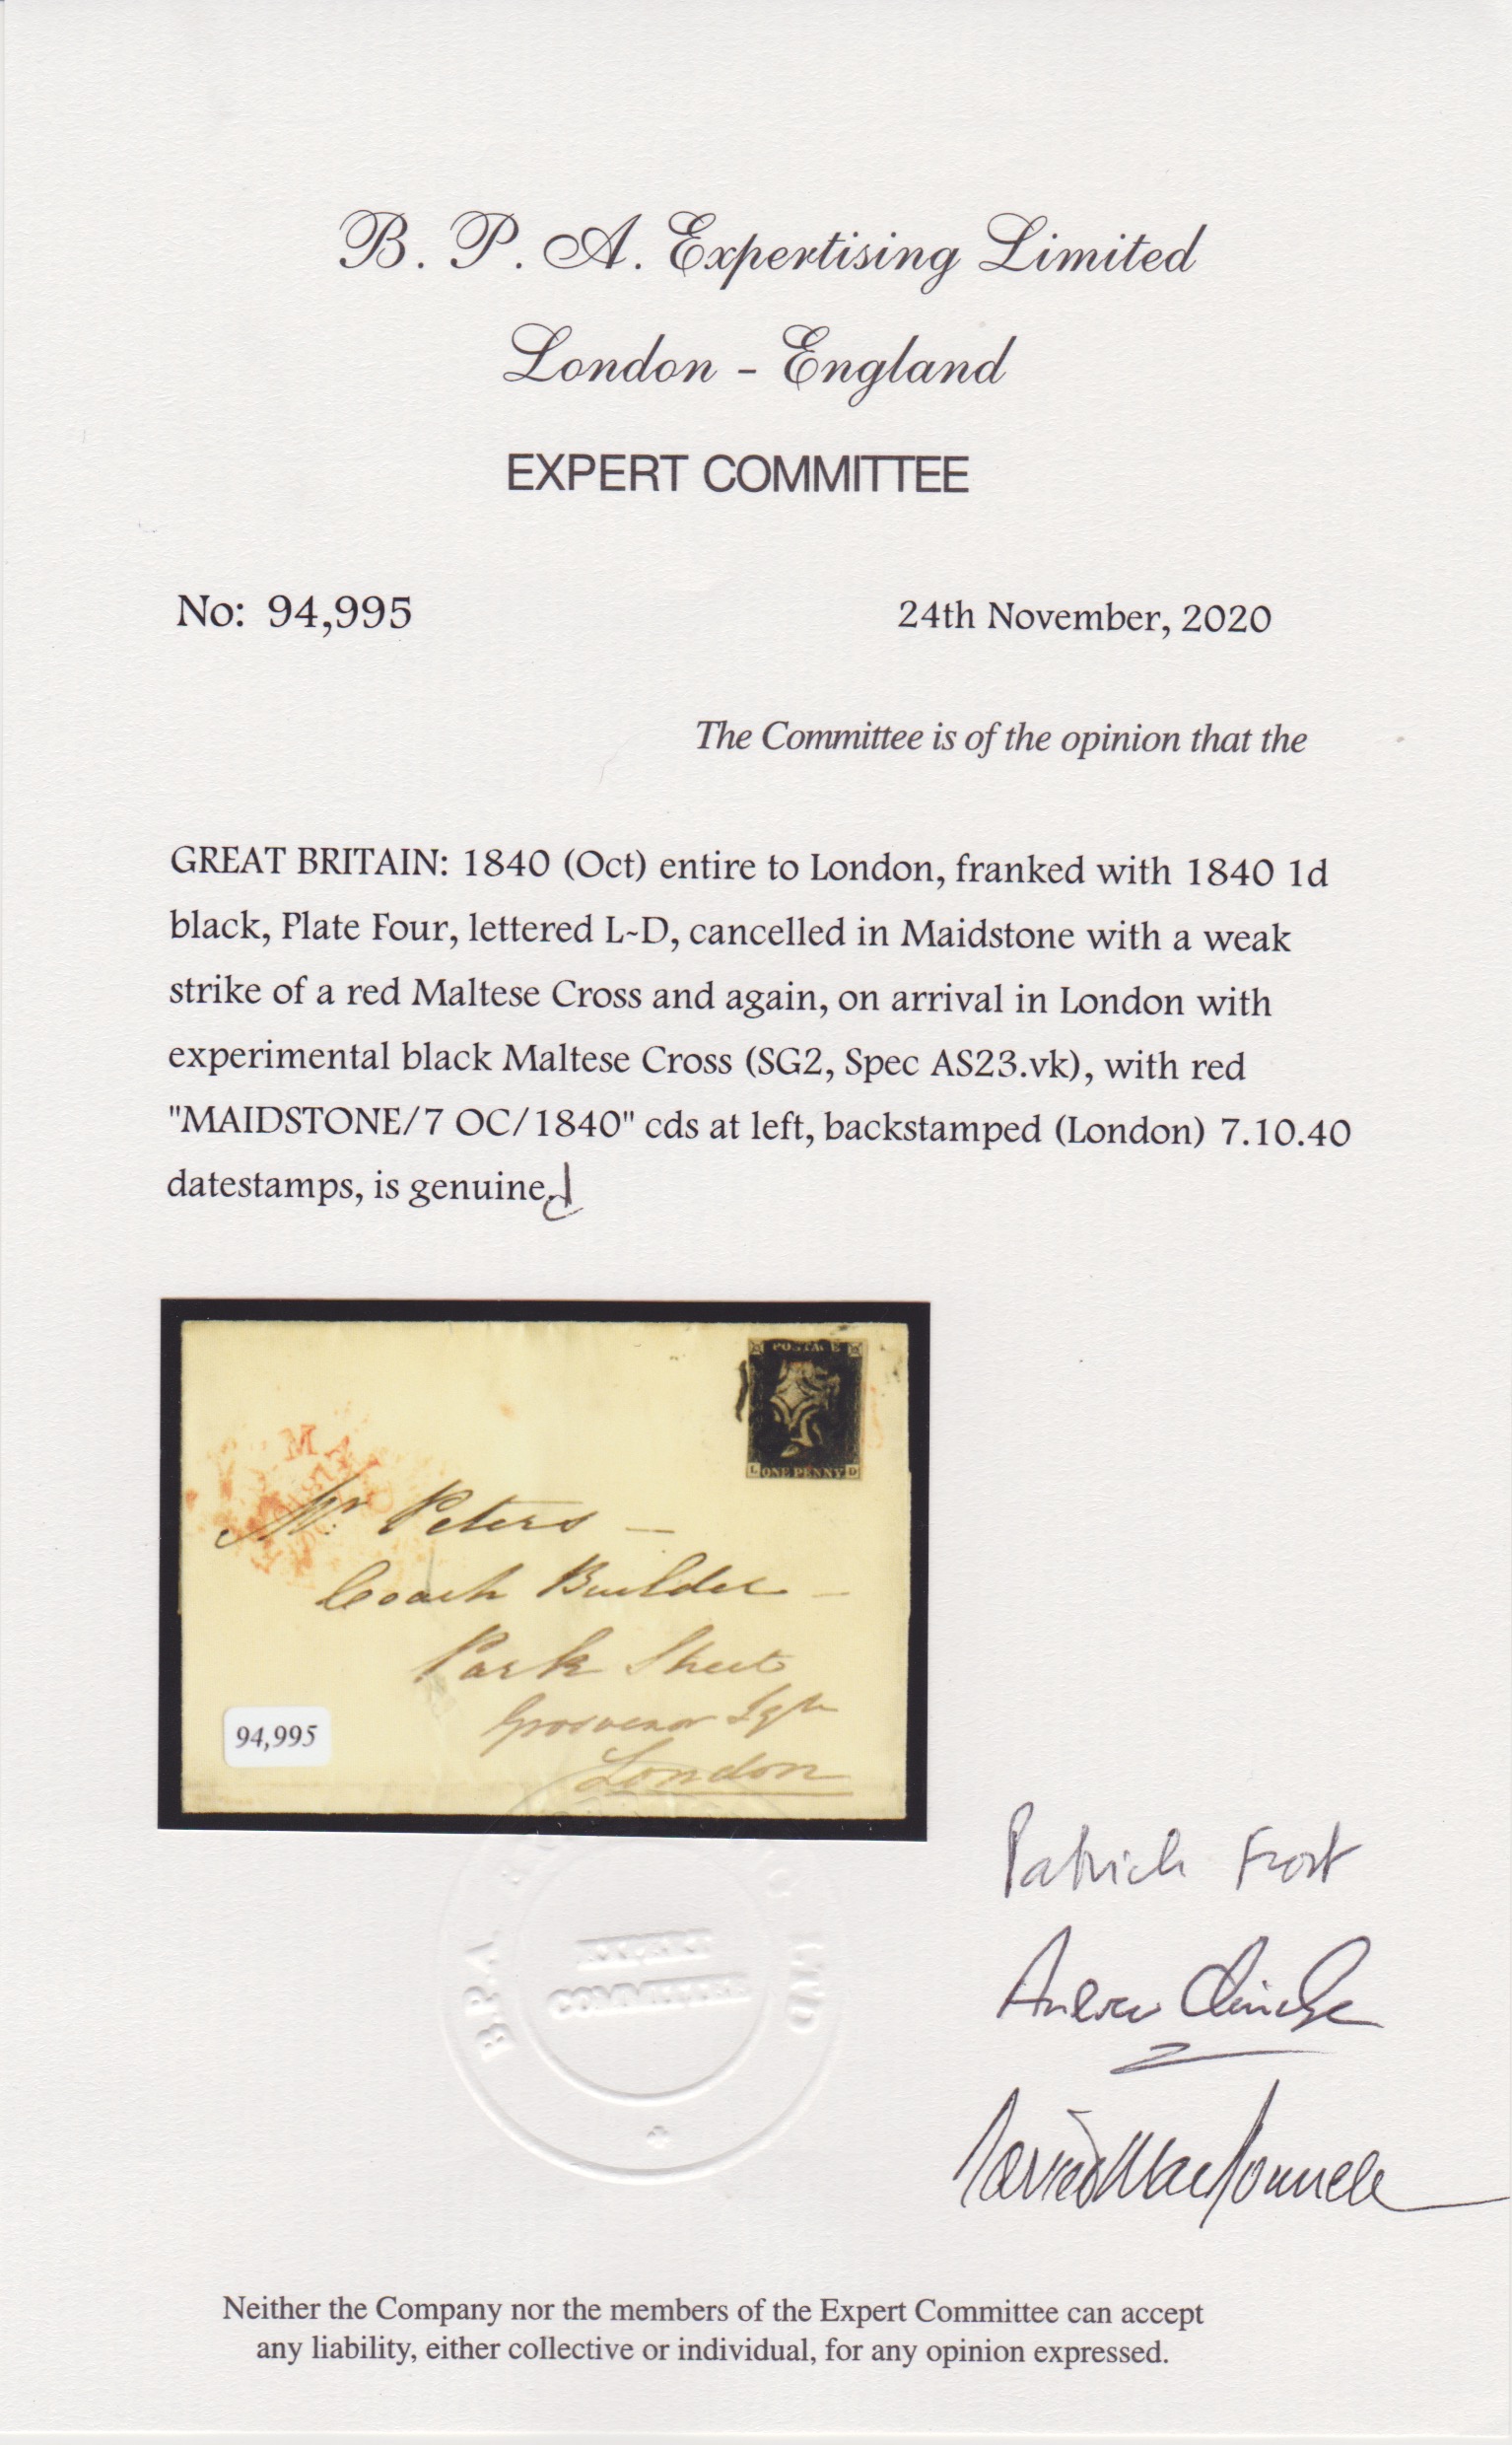 B. P. A. Expertising Limited
London - England
EXPERT COMMITTEE
No: 94,995
24th November, 2020
The Committee is of the opinion that the
GREAT BRITAIN: 1840 (Oct) entire to London, franked with 1840 1d
black, Plate Four, lettered L~D, cancelled in Maidstone with a weak
strike of a red Maltese Cross and again, on arrival in London with
experimental black Maltese Cross (SG2, Spec AS23.vk), with red
"MAIDSTONE/7 OC/1840" cds at left, backstamped (London) 7.10.40
datestamps, is genuine.
POSTAGE
L ONE PENNY D
MA
Mr. Peters —
Coach Builder —
Park Street
Grosvenor Sqr
London
94,995
BPA LTD
EXPERT
COMMITTEE
Patrick Frost
Andrew
David MacDonnell
Neither the Company nor the members of the Expert Committee can accept
any liability, either collective or individual, for any opinion expressed.